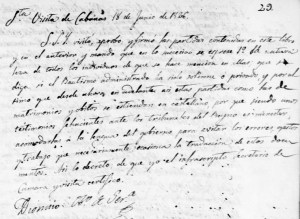 23.
Sta Visita de Cabañas 18 de Junio de 1866
S.S.I. visitó, aprobó y firmó las partidas contenidas en este libro
y en el anterior, mandó que en lo sucesivo se esprese la natura
leza de todos los individuos de que se hace mencion en ellas que se
diga si el Bautismo administrado ha sido solemne ó privado y por
timo que desde ahora en adelante asi estas partidas como las de
matrimonios y obitos se estiendan en castellano por que siendo unos
testimonios fehacientes ante los tribunales del Reyno es menester
acomodarlas á la lengua del gobierno para evitar los errores gastos
y trabajo que necesariamente ocasiona la traduccion de estos docu
mentos. Asi lo decretó de que yo el infrascrito secretario de
Cámara y Visita certifico.
Dionisio